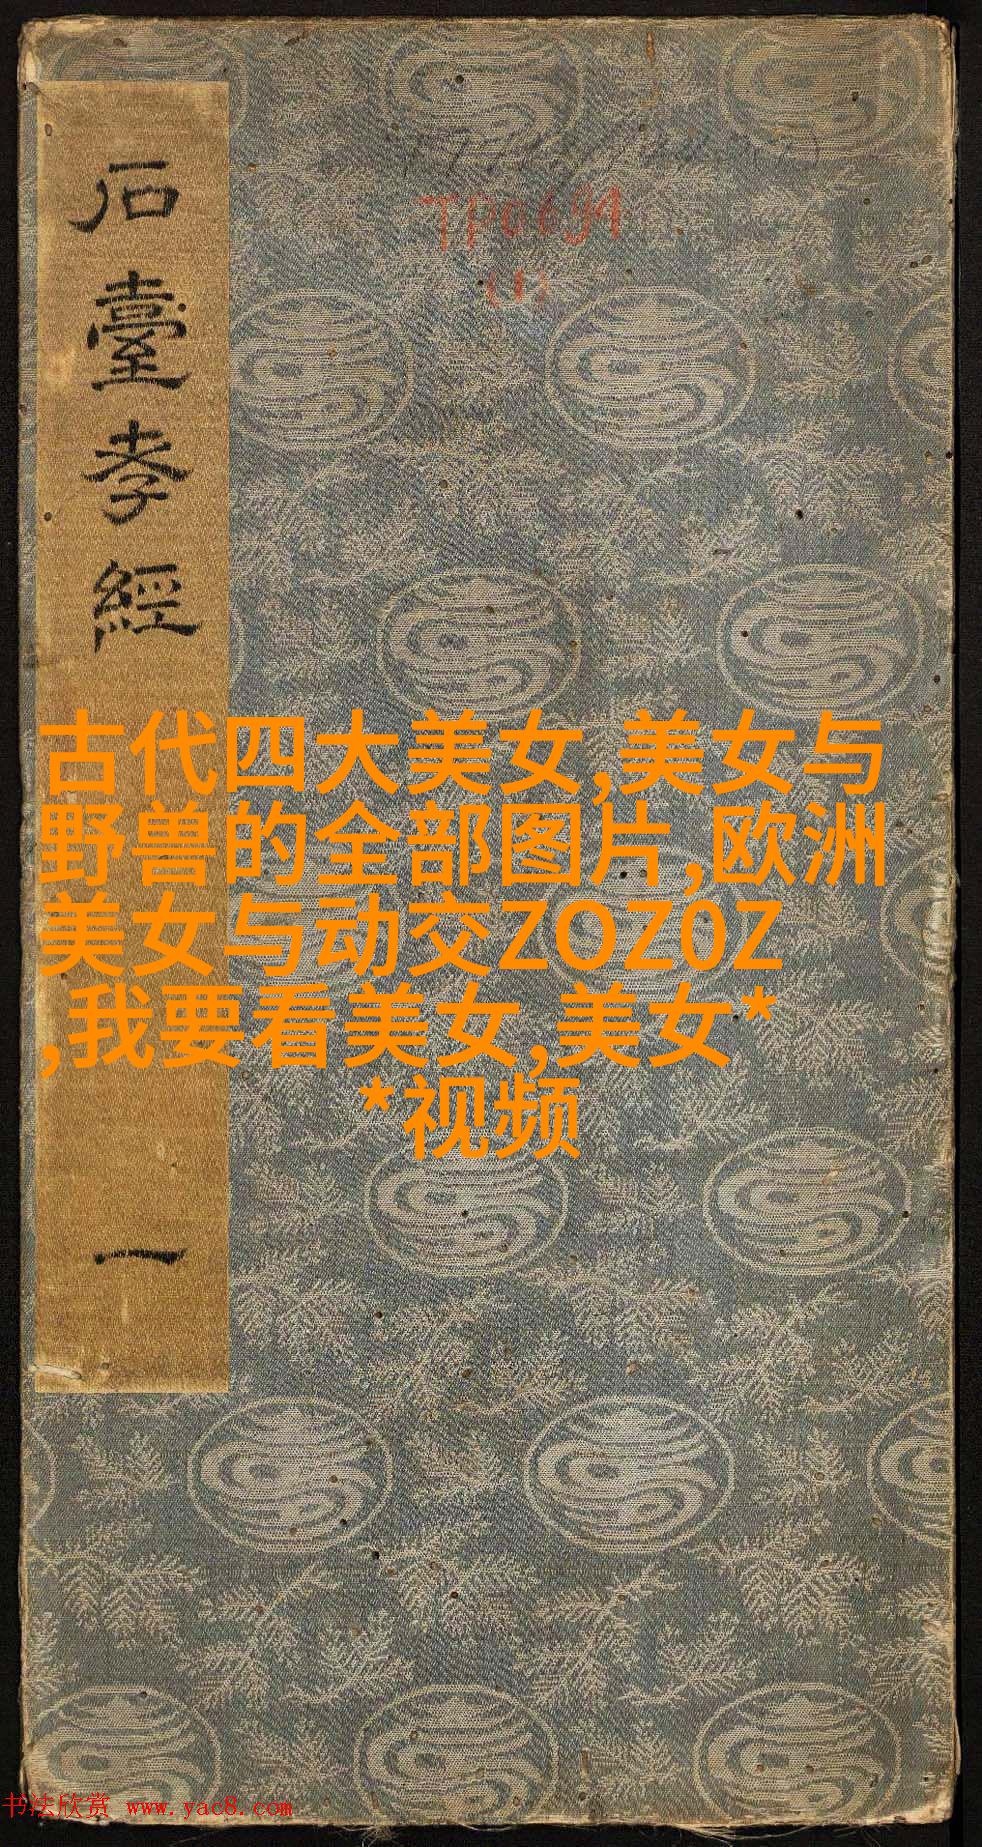 石臺孝經
一
TP0691
(1)
古代四大美女,美女与
野兽的全部图片,欧洲
美女与动交ZOZ0Z
,我要看美女,美女*
*视频
书法欣赏 www.yac8.com